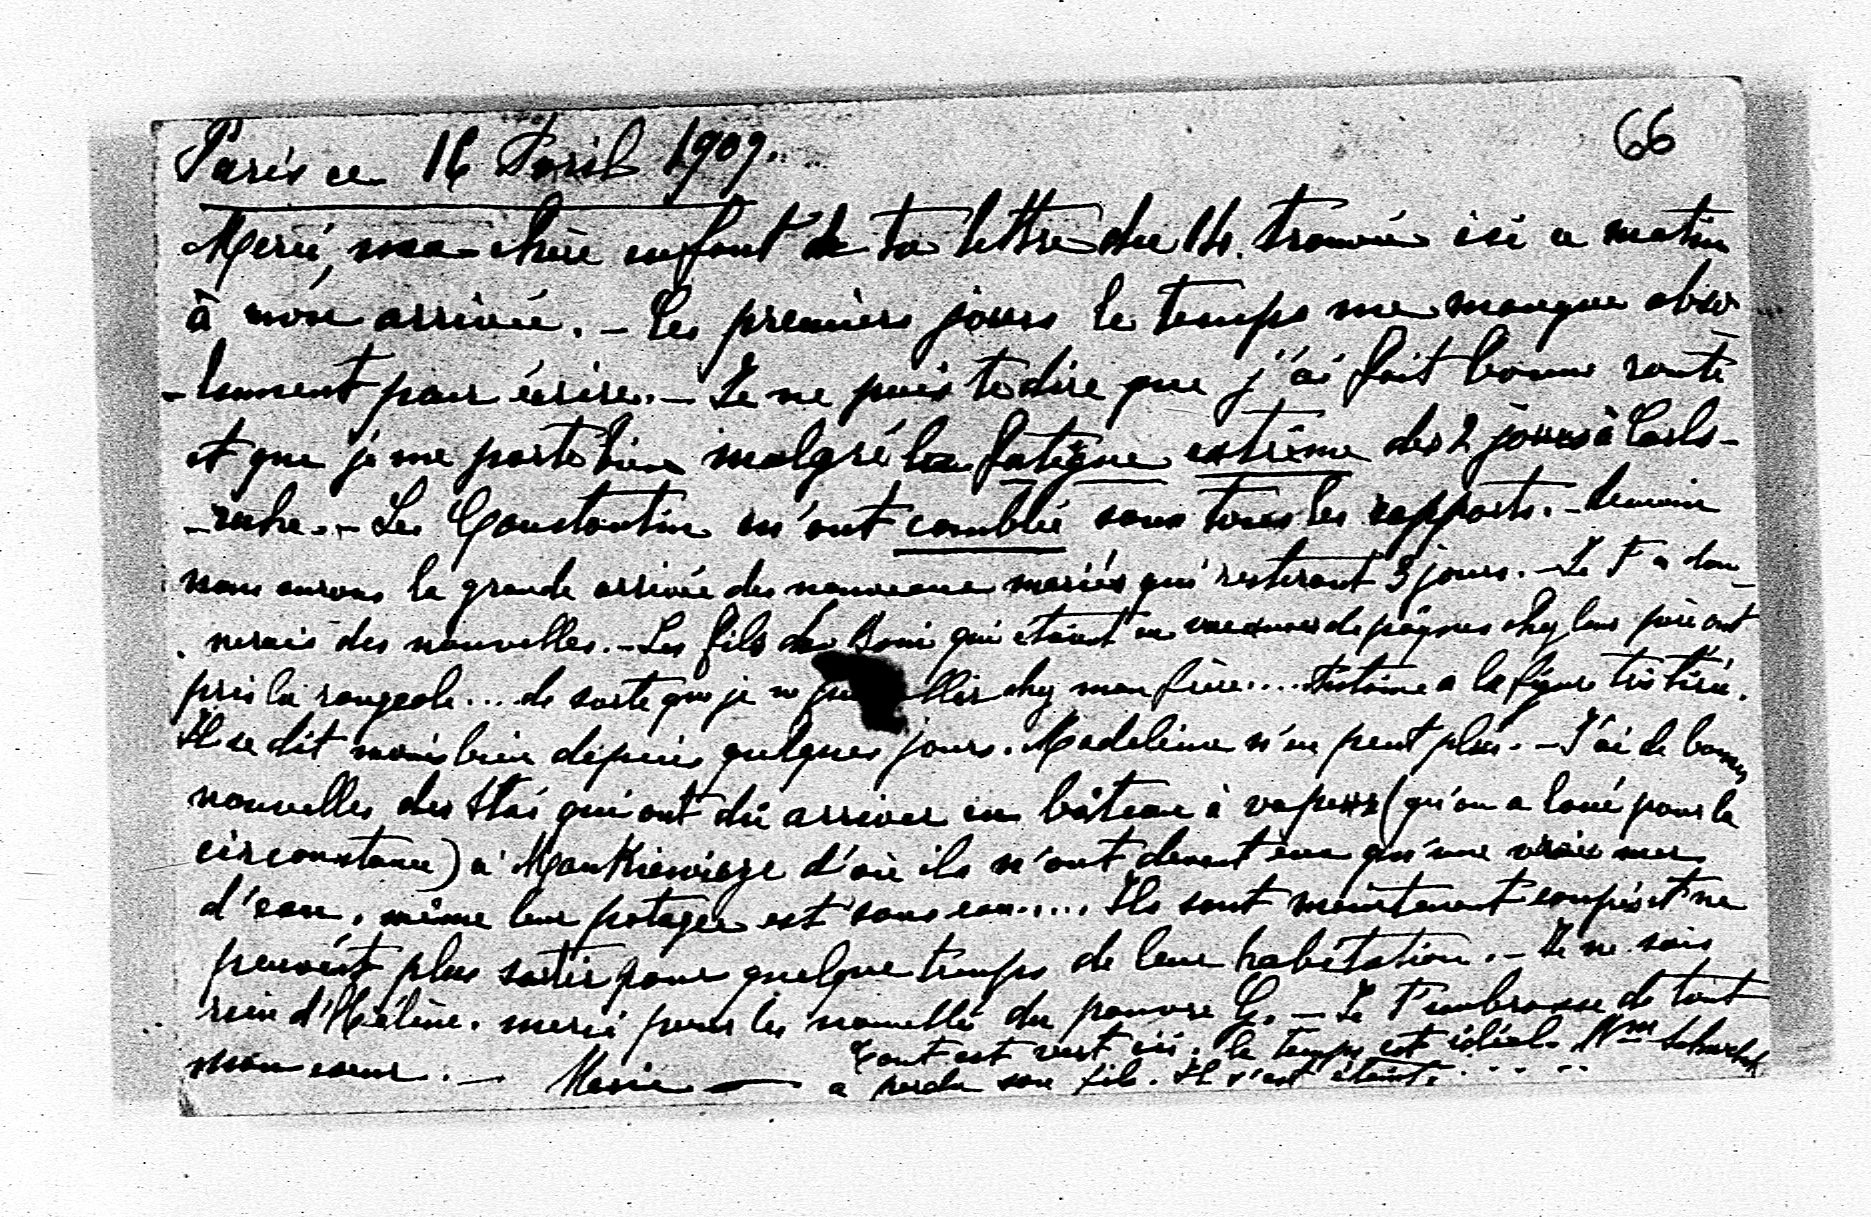 66
Paris ce 16 Avril 1909.
Merci, ma chère enfant de ta lettre du 14. trouvée ici ce matin
à mon arrivée. – Les premiers jours le temps me manque abso
-lument pour écrire. – Je ne puis te dire que j'ai fait bonne route
et que je me porte bien malgré la fatigue extrême des 2 jours à Carls-
-ruhe. – Les Constantin m'ont comblée sous tous les rapports. – Demain
nous aurons la grande arrivée des nouveaux mariés qui resteront 3 jours. – Je t'en don-
nerais des nouvelles. – Les fils de Boni qui étaient en vacances de pâques chez leur père ont
pris la rougeole ... de sorte que je ne aller chez mon frère .... Antoine a la figure très tirée.
Il se dit moins bien depuis quelques jours. Madeleine n'en peut plus. – J'ai de bonnes
nouvelles des Stas qui ont dû arriver en bâteau à vapeur (qu'on a loué pour la
circonstance) à Mankiewicze d'où ils n'ont devant eux qu'une vraie mer
d'eau, même leur potager est sous eau .... Ils sont maintenant coupés et ne
peuvent plus sortir pour quelque temps de leur habitation. – Je ne sais
rien d'Hélène. merci pour les nouvelles du pauvre G. – Je t'embrasse de tout
mon coeur. – Marie –
Tout est vert ici. le temps est idéal. Mme
a perdu son fils. Il s'est éteint. .....